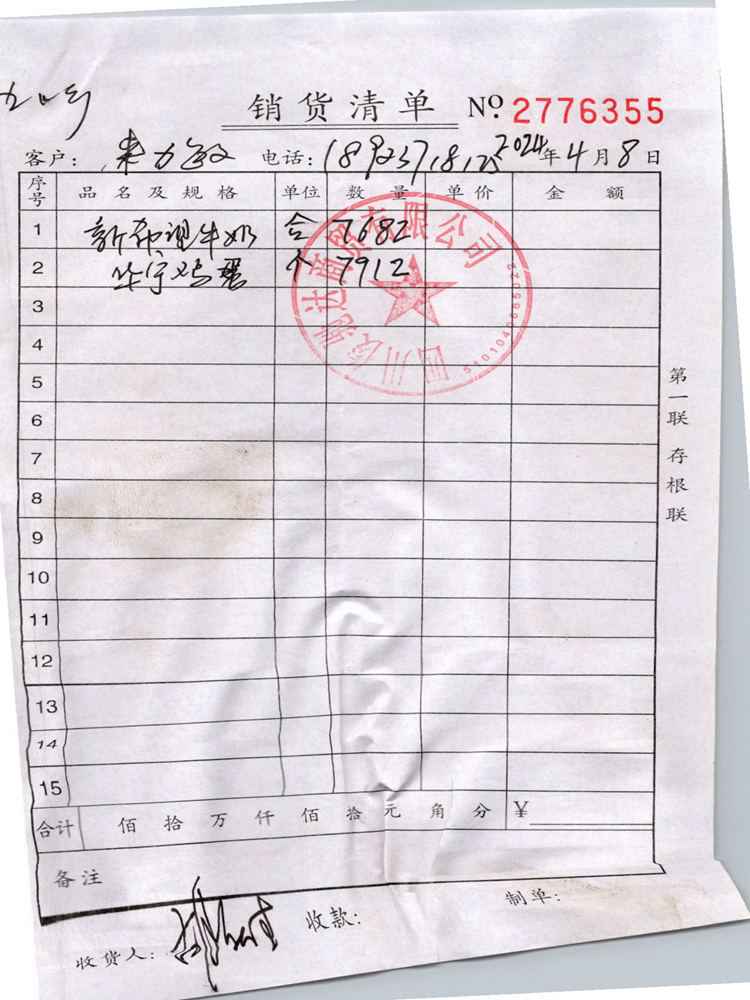 销货清单 Nº 2776355
客户: 电话: 18923718125 2024年4月8日
序号 品名及规格 单位 数量 单价 金额
1 新希望牛奶 合 7682
2 华宁鸡蛋 个 7912
3
4
5
6
7
8
9
10
11
12
13
14
15
合计 佰 拾 万 仟 佰 拾 元 角 分 ¥
备注
收货人: 收款: 制单:
第一联 存根联